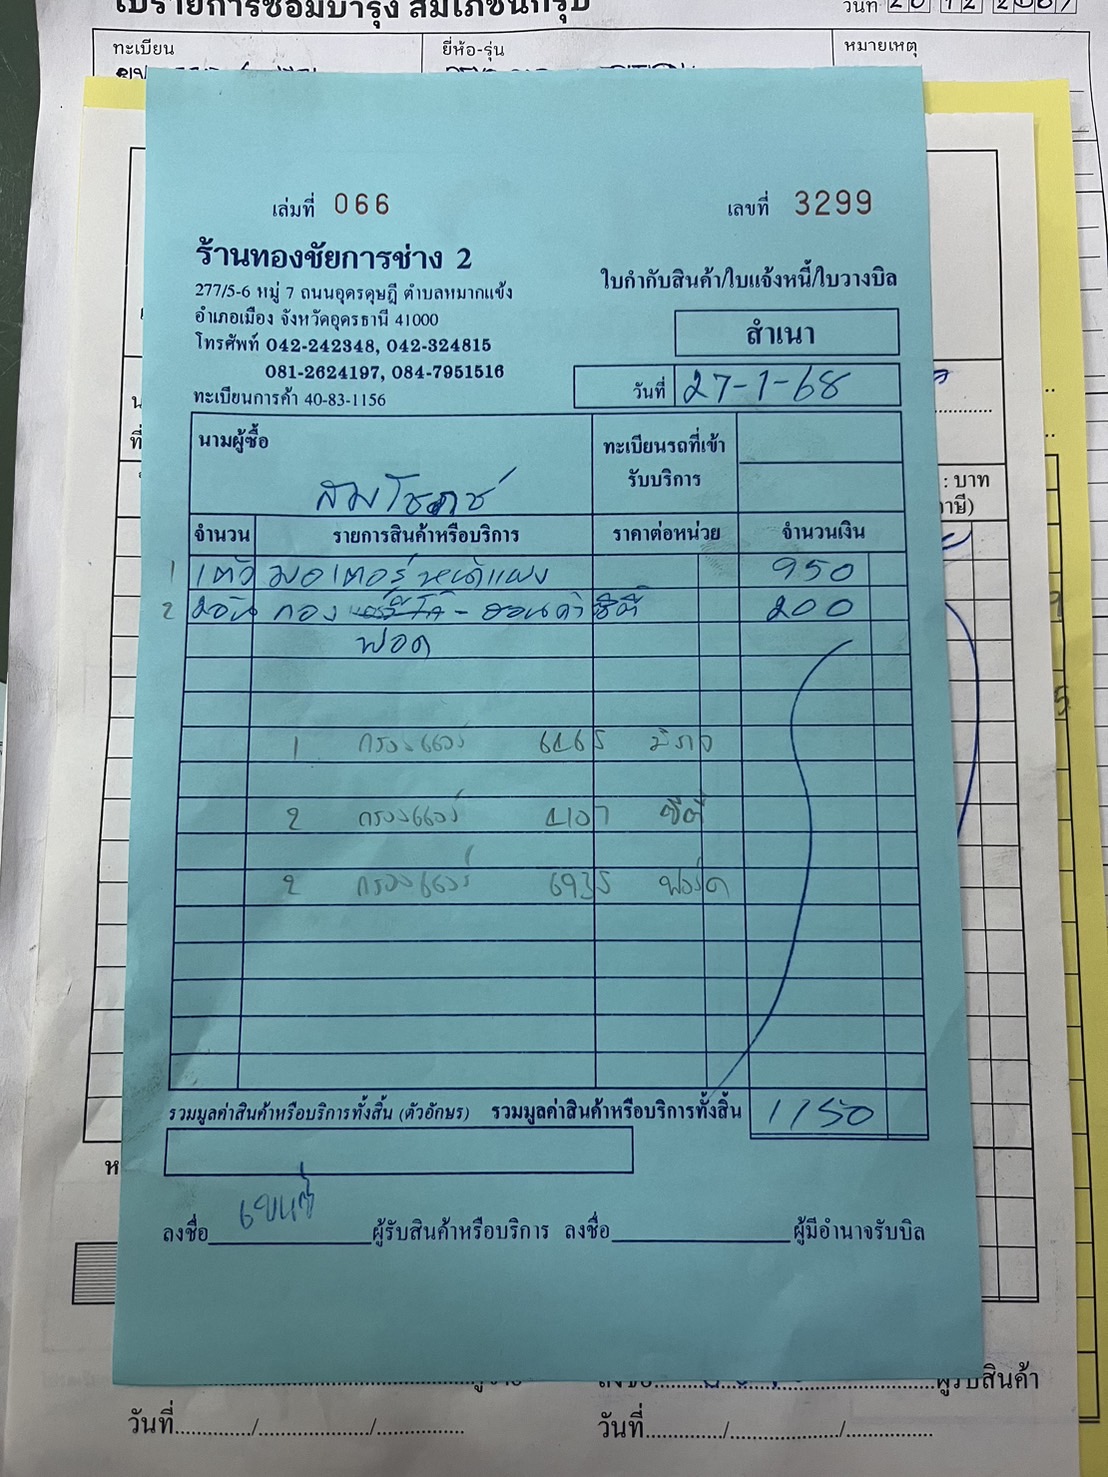 ใบรายการซ่อมบำรุง สมโภชน์กรุ๊ป
วันที่ 20 12 2567
ทะเบียน
ยี่ห้อ-รุ่น
หมายเหตุ
เล่มที่ 066
เลขที่ 3299
ร้านทองชัยการช่าง 2
277/5-6 หมู่ 7 ถนนอุดรดุษฎี ตำบลหมากแข้ง
อำเภอเมือง จังหวัดอุดรธานี 41000
โทรศัพท์ 042-242348, 042-324815
081-2624197, 084-7951516
ทะเบียนการค้า 40-83-1156
ใบกำกับสินค้า/ใบแจ้งหนี้/ใบวางบิล
สำเนา
วันที่ 27-1-68
นามผู้ซื้อ
ทะเบียนรถที่เข้า
รับบริการ
: บาท
จำนวน รายการสินค้าหรือบริการ ราคาต่อหน่วย จำนวนเงิน
1 1 ตัว มอเตอร์ หน้าแผง 950
2 2 อัน กอง - ฮอนด้า ซิตี้ 200
ฟอด
1 กรองแอร์ 6165 มิราจ
2 กรองแอร์ 1107 ซิตี้
2 กรองแอร์ 6935 ฟอร์ด
รวมมูลค่าสินค้าหรือบริการทั้งสิ้น (ตัวอักษร) รวมมูลค่าสินค้าหรือบริการทั้งสิ้น 1150
ลงชื่อ ผู้รับสินค้าหรือบริการ ลงชื่อ ผู้มีอำนาจรับบิล
ผู้รับสินค้า
วันที่ / /
วันที่ / /